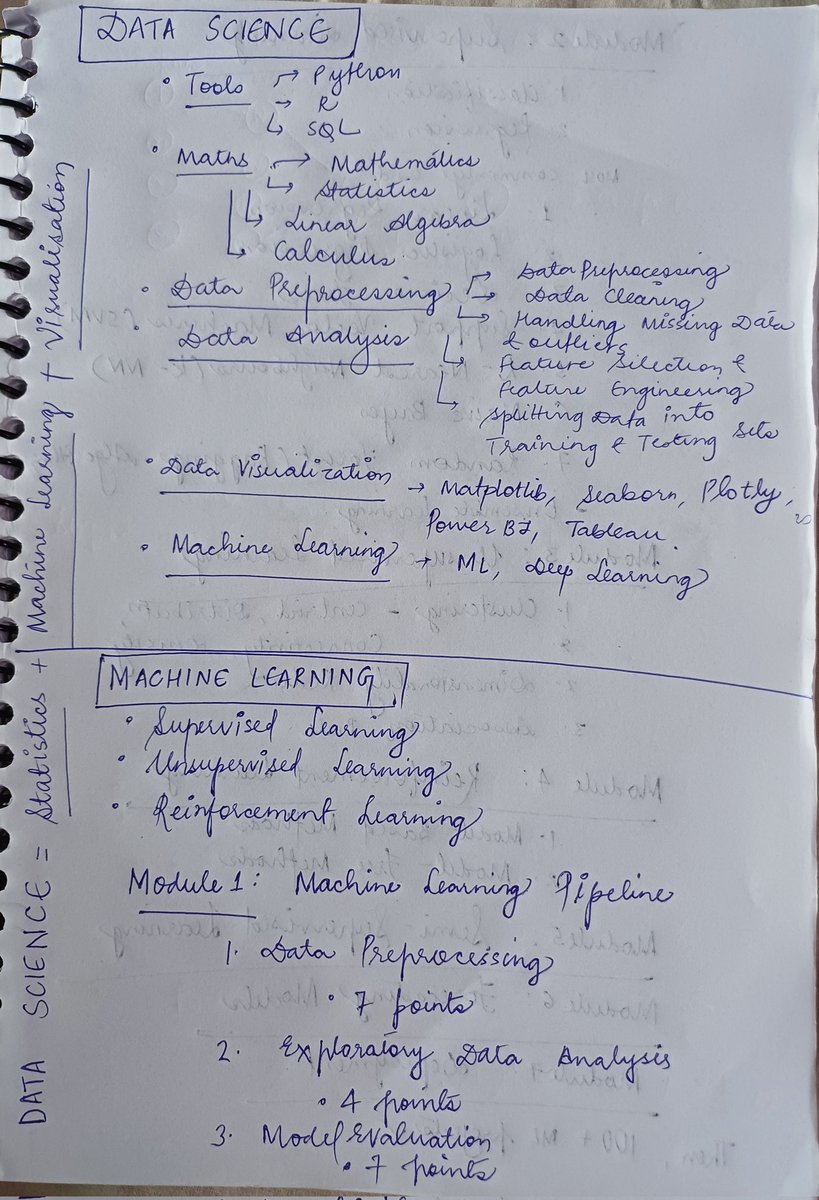 DATA SCIENCE
• Tools → Python
→ R
↳ SQL
• Maths → Mathematics
↳ Statistics
↳ Linear Algebra
↳ Calculus
• Data Preprocessing → Data Preprocessing
Data Analysis → Data Cleaning
↳ Handling Missing Data
& outliers
↳ Feature Selection &
Feature Engineering
↳ Splitting Data into
Training & Testing Sets
• Data Visualization → Matplotlib, Seaborn, Plotly,
Power BI, Tableau
• Machine Learning → ML, Deep Learning
MACHINE LEARNING
• Supervised Learning
• Unsupervised Learning
• Reinforcement Learning
Module 1: Machine Learning Pipeline
1. Data Preprocessing
• 7 points
2. Exploratory Data Analysis
• 4 points
3. Model Evaluation
• 7 points
DATA SCIENCE = Statistics + Machine Learning + Visualisation